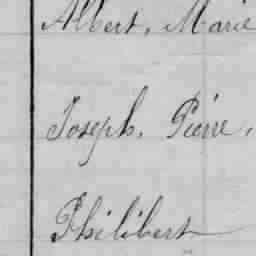 Albert, Marie
Joseph, Pierre,
Philibert